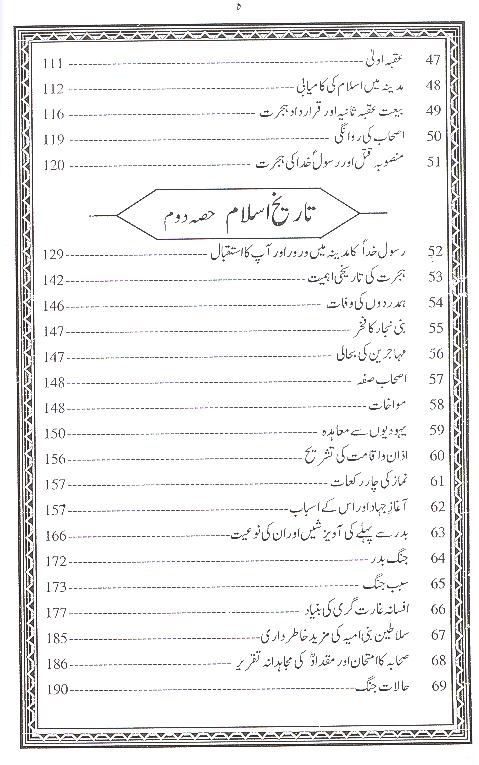 ۵
47 عقبہ اولیٰ 111
48 مدینہ میں اسلام کی کامیابی 112
49 بیعت عقبہ ثانیہ اور قرارداد ہجرت 116
50 اصحاب کی روانگی 119
51 منصوبہ قتل اور رسولؐ خدا کی ہجرت 120
تاریخ اسلام حصہ دوم
52 رسول خداؐ کا مدینہ میں ورور اور آپ کا استقبال 129
53 ہجرت کی تاریخی اہمیت 142
54 ہمدردوں کی وفات 146
55 بنی نجار کا فخر 147
56 مہاجرین کی بحالی 147
57 اصحاب صفہ 148
58 مواخات 148
59 یہودیوں سے معاہدہ 150
60 اذان و اقامت کی تشریح 156
61 نماز کی چار رکعات 157
62 آغاز جہاد اور اس کے اسباب 157
63 بدر سے پہلے کی آویزشیں اور ان کی نوعیت 166
64 جنگ بدر 172
65 سبب جنگ 173
66 افسانہ غارت گری کی بنیاد 177
67 سلاطین بنی امیہ کی مزید خاطر داری 185
68 صحابہ کا امتحان اور مقدادؓ کی مجاہدانہ تقریر 186
69 حالات جنگ 190